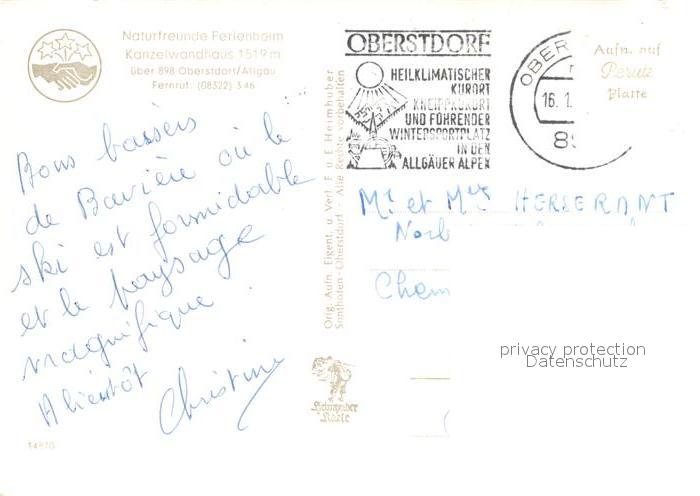 Naturfreunde Ferienheim
Kanzelwandhaus 1519 m
über 898 Oberstdorf/Allgäu
Fernruf: (08322) 3 46
OBERSTDORF
HEILKLIMATISCHER
KURORT
KNEIPPKURORT
UND FÜHRENDER
WINTERSPORTPLATZ
IN DEN
ALLGÄUER ALPEN
OBER
16. 1.
89
Aufn. auf
Perutz
Platte
Bons baisers
de Bavière où le
ski est formidable
et le paysage
magnifique.
A bientôt
Christine
Orig. Aufn. Eigent. u. Verl. F. u. E. Heimhuber
Sonthofen-Oberstdorf - Alle Rechte vorbehalten
Heimhuber
Karte
Mr et Mme HERSERANT
Chem
privacy protection
Datenschutz